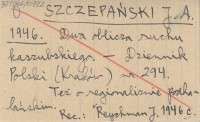 SZCZEPAŃSKI J. A.
1946. Dwa oblicza ruchu
kaszubskiego. — Dziennik
Polski (Kraków) nr. 294.
Też o regionaliźmie podha-
lańskim.
Rec.: Reychman J. 1946 c.